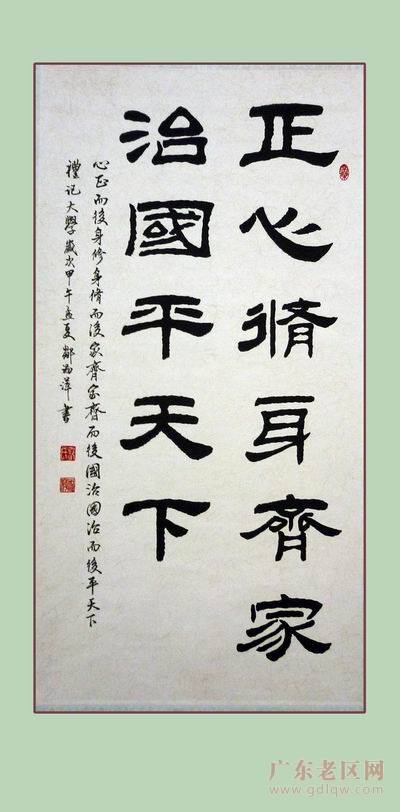 正心脩身齊家
治國平天下
心正而後身修身脩而後家齊家齊而後國治國治而後平天下
禮記大學歲次甲午孟夏鄒書
广东老区网
www.gdlqw.com